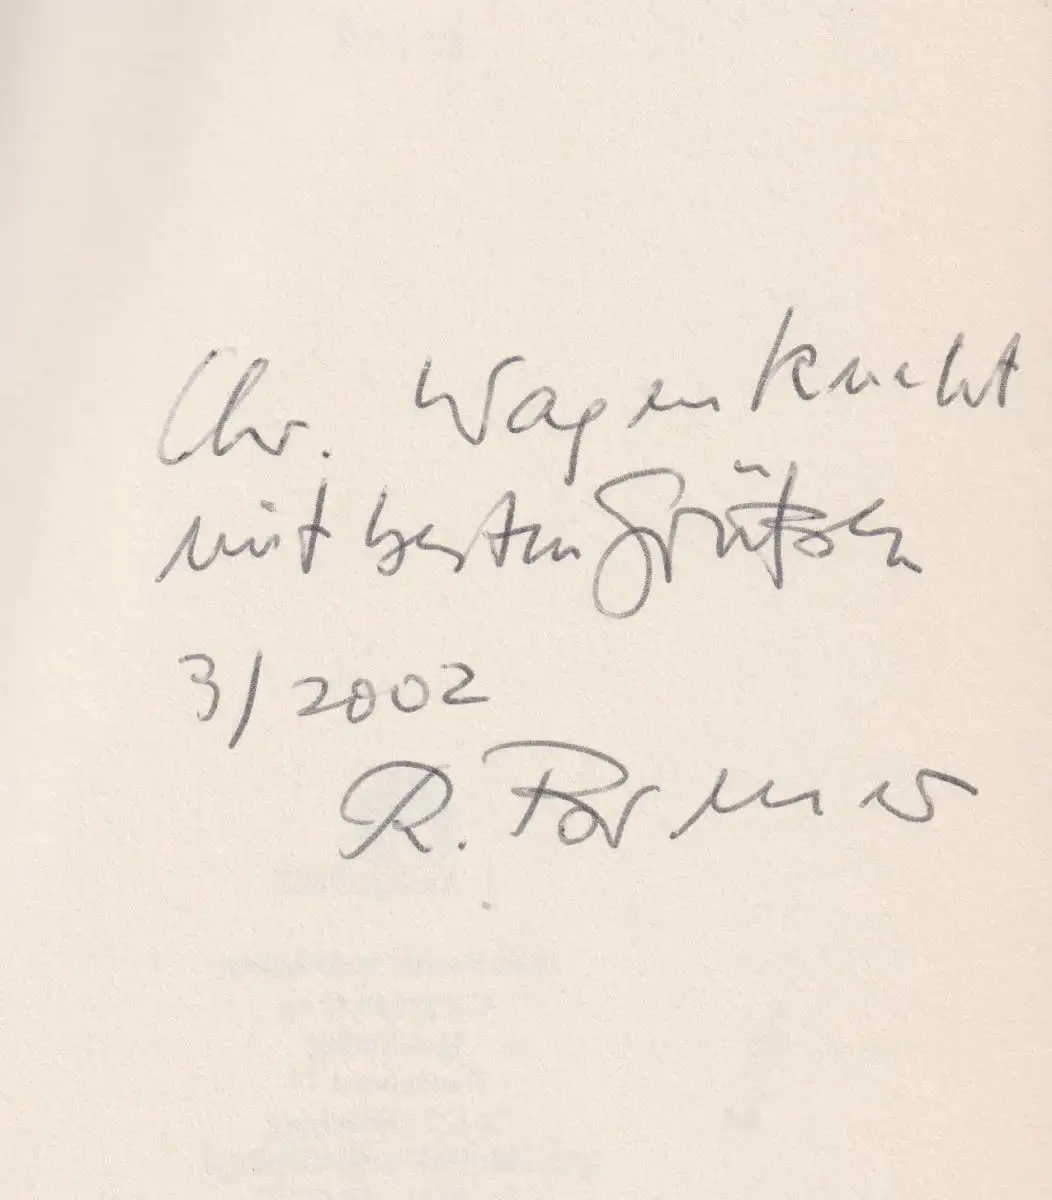 Chr. Wagenknecht
mit besten Grüßen
3/2002
R.